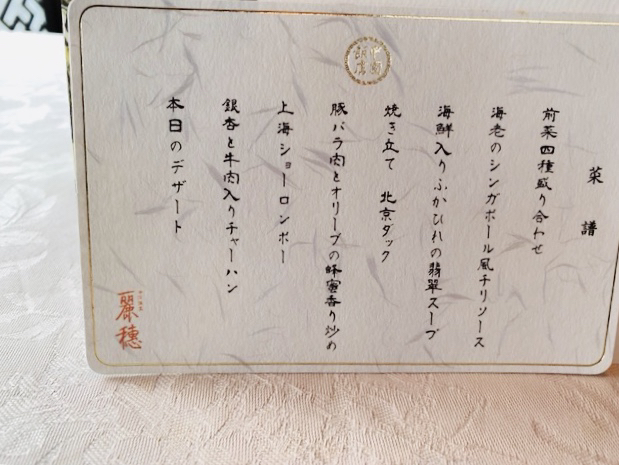 菜譜
前菜四種盛り合わせ
海老のシンガポール風チリソース
海鮮入りふかひれの翡翠スープ
焼き立て 北京ダック
豚バラ肉とオリーブの蜂蜜香り炒め
上海ショーロンポー
銀杏と牛肉入りチャーハン
本日のデザート
麗穂